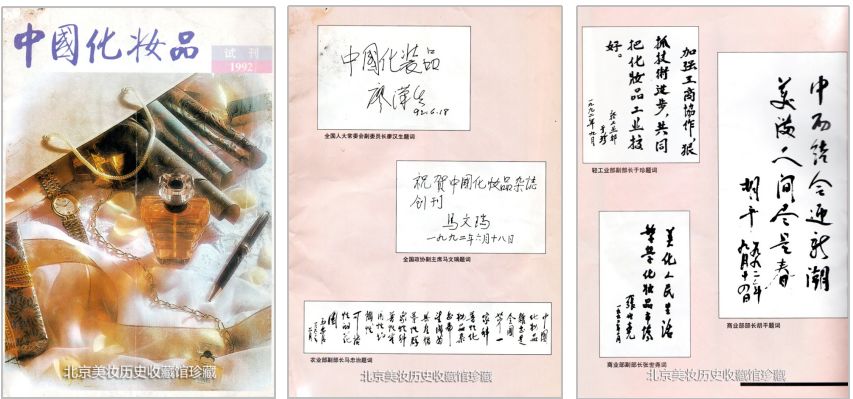 中國化妆品
试刊
1992
北京美妆历史收藏馆珍藏
中國化装品
廖漢生
92.6.18
全国人大常委会副委员长廖汉生题词
祝贺中国化妆品杂誌
创刊
马文瑞
一九九二年六月十八日
全国政协副主席马文瑞题词
中国
化妆品
全国
第一
农业部副部长马忠治题词
北京美妆历史收藏馆珍藏
加强工商協作，狠
抓技術进步，共同
把化妝品工业搞
好。
一九九二年九月
轻工业部副部长于珍题词
中西结合迎新潮
美满人间尽是春
胡平
一九九二年
九月十四日
商业部部长胡平题词
美化人民生活
繁榮化妆品市场
张世尧
商业部副部长张世尧题词
北京美妆历史收藏馆珍藏